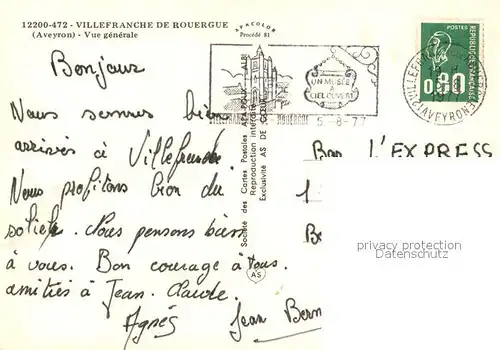 12200-472 - VILLEFRANCHE DE ROUERGUE
(Aveyron) - Vue générale
APACOLOR
Procédé 81
Bonjour
Nous sommes bien
arrivés à Villefranche
Nous profitons bien du
soleil. Nous pensons bien
à vous. Bon courage à tous.
amitiés à Jean-Claude.
Agnès Jean Bern
Société des Cartes Postales APA-POUX - ALBI
Reproduction interdite
Exclusivité AS DE CŒUR
AS
UN MUSÉE
A
CIEL OUVERT
VILLEFRANCHE ROUERGUE 5-8-77
12 VILLEFRANCHE
1977
AVEYRON
0,80
REPUBLIQUE FRANÇAISE
L'EXPRESS
privacy protection
Datenschutz